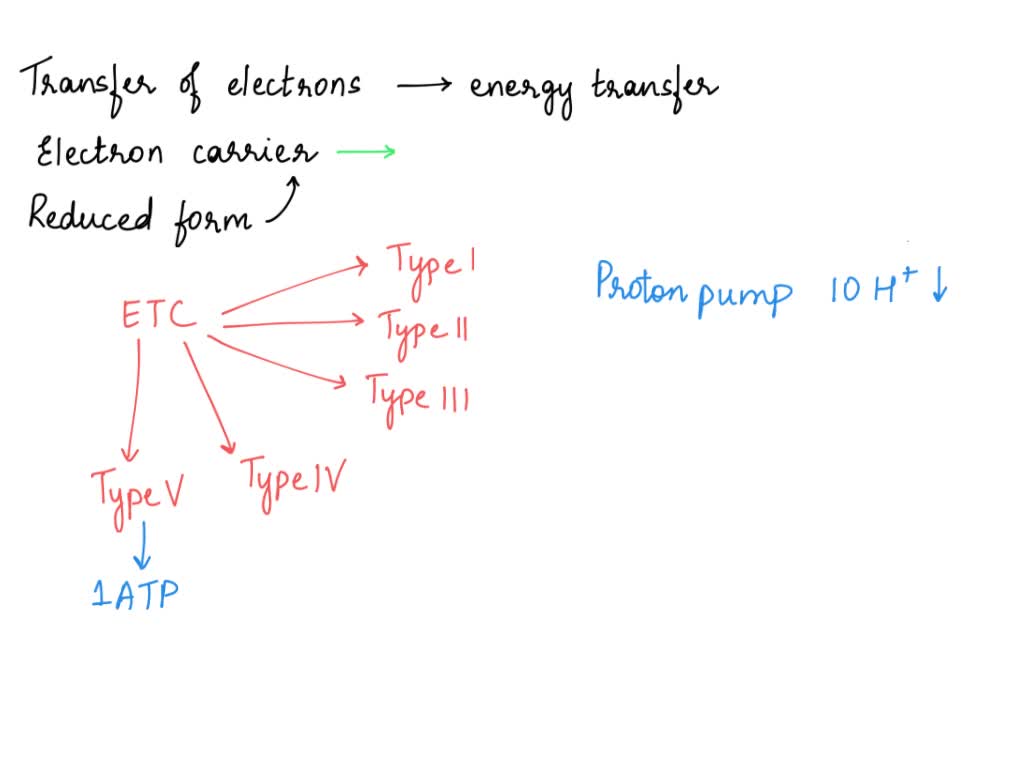 Transfer of electrons → energy transfer
Electron carrier →
Reduced form
Type I
ETC
Type II
Type III
Proton pump 10 H⁺ ↓
Type V
Type IV
1 ATP